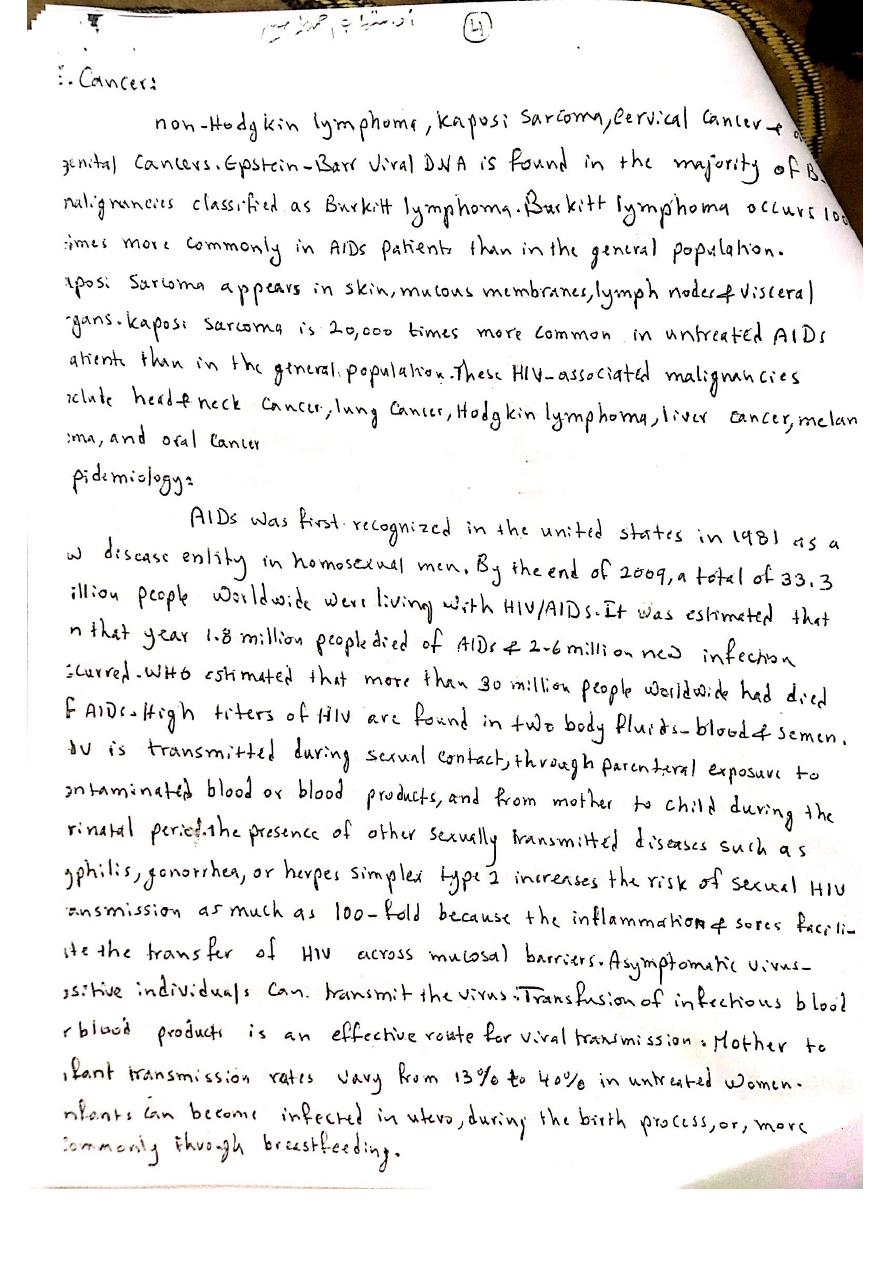 4
Cancer:
non-Hodgkin lymphoma, Kaposi sarcoma, Cervical Cancer &
genital Cancers. Epstein-Barr Viral DNA is found in the majority of B-
malignancies classified as Burkitt lymphoma. Burkitt lymphoma occurs 100
imes more commonly in AIDs patients than in the general population.
aposi Sarcoma appears in skin, mucous membranes, lymph nodes & visceral
rgans. Kaposi sarcoma is 20,000 times more common in untreated AIDs
atients than in the general population. These HIV-associated malignancies
nclude head & neck cancer, lung cancer, Hodgkin lymphoma, liver cancer, melan
oma, and oral Cancer
pidemiology:
AIDs was first recognized in the united states in 1981 as a
w disease entity in homosexual men. By the end of 2009, a total of 33.3
illion people worldwide were living with HIV/AIDs. It was estimated that
n that year 1.8 million people died of AIDs & 2.6 million new infection
ccurred. WHO estimated that more than 30 million people worldwide had died
f AIDs. High titers of HIV are found in two body fluids - blood & semen.
IV is transmitted during sexual contact, through parenteral exposure to
ontaminated blood or blood products, and from mother to child during the
rinatal period. the presence of other sexually transmitted diseases such as
yphilis, gonorrhea, or herpes simplex type 2 increases the risk of sexual HIV
ansmission as much as 100-fold because the inflammation & sores facili-
ate the transfer of HIV across mucosal barriers. Asymptomatic virus-
ositive individuals can transmit the virus. Transfusion of infectious blood
r blood products is an effective route for viral transmission. Mother to
nfant transmission rates vary from 13% to 40% in untreated women.
nfants can become infected in utero, during the birth process, or, more
commonly through breastfeeding.